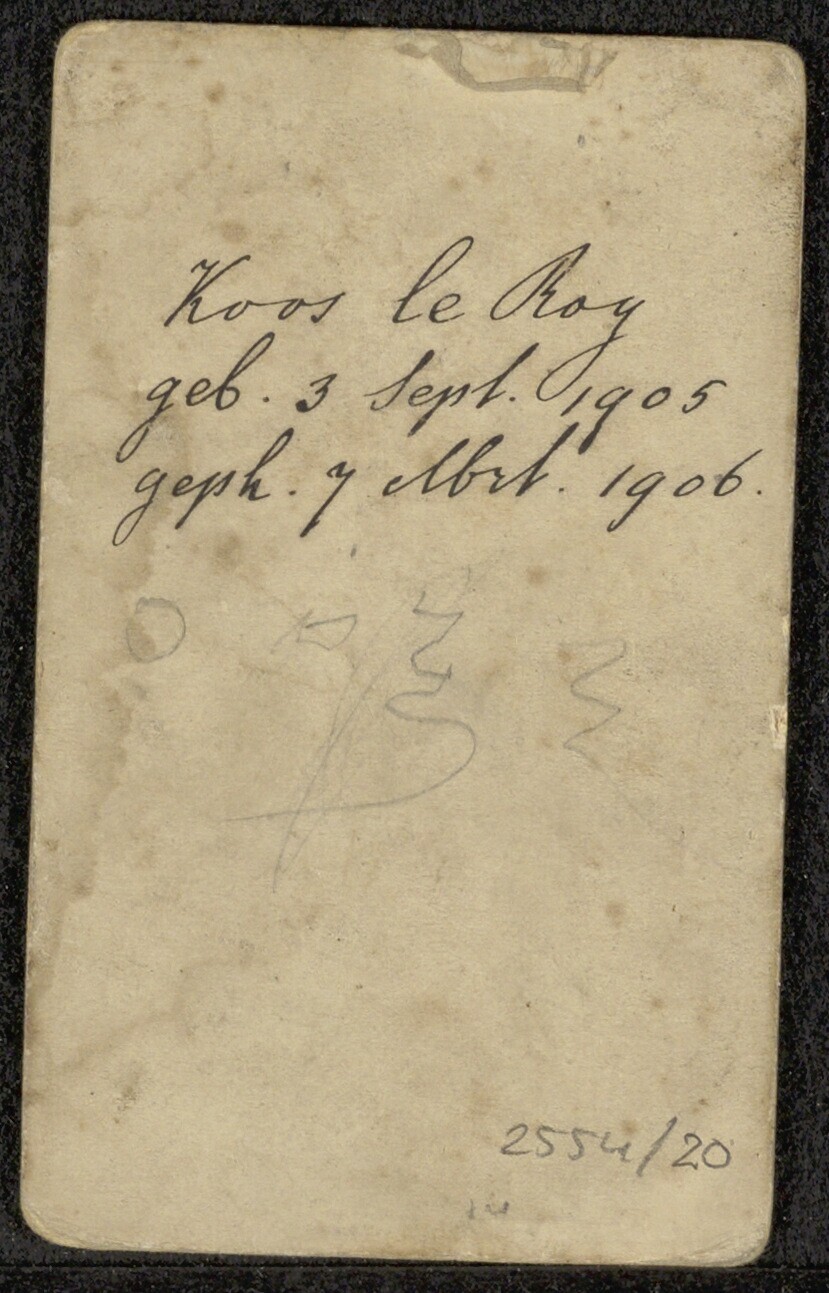 Koos le Roy
geb. 3 Sept. 1905
geph. 7 Mrt. 1906.
2554/20